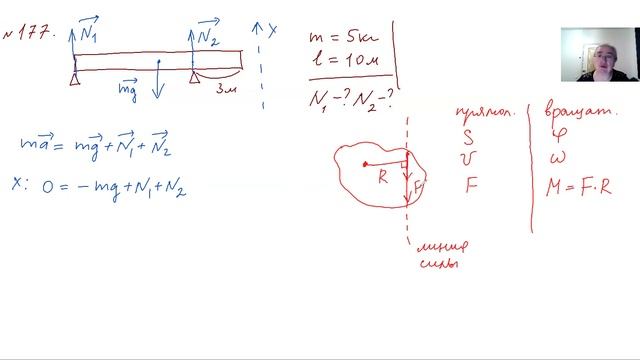 №177.
N₁
N₂
x
mg
3м
m = 5кг
l = 10м
N₁-? N₂-?
ma = mg + N₁ + N₂
x: 0 = -mg + N₁ + N₂
R
F
линия
силы
прямол. вращат.
S φ
v ω
F M = F·R